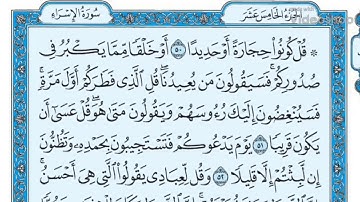 الجزء الخامس عشر
سورة الإسراء
۞ قُلْ كُونُوا۟ حِجَارَةً أَوْ حَدِيدًا ۝٥٠ أَوْ خَلْقًا مِّمَّا يَكْبُرُ فِى
صُدُورِكُمْ ۚ فَسَيَقُولُونَ مَن يُعِيدُنَا ۖ قُلِ ٱلَّذِى فَطَرَكُمْ أَوَّلَ مَرَّةٍ ۚ
فَسَيُنْغِضُونَ إِلَيْكَ رُءُوسَهُمْ وَيَقُولُونَ مَتَىٰ هُوَ ۖ قُلْ عَسَىٰٓ أَن
يَكُونَ قَرِيبًا ۝٥١ يَوْمَ يَدْعُوكُمْ فَتَسْتَجِيبُونَ بِحَمْدِهِۦ وَتَظُنُّونَ
إِن لَّبِثْتُمْ إِلَّا قَلِيلًا ۝٥٢ وَقُل لِّعِبَادِى يَقُولُوا۟ ٱلَّتِى هِىَ أَحْسَنُ ۚ